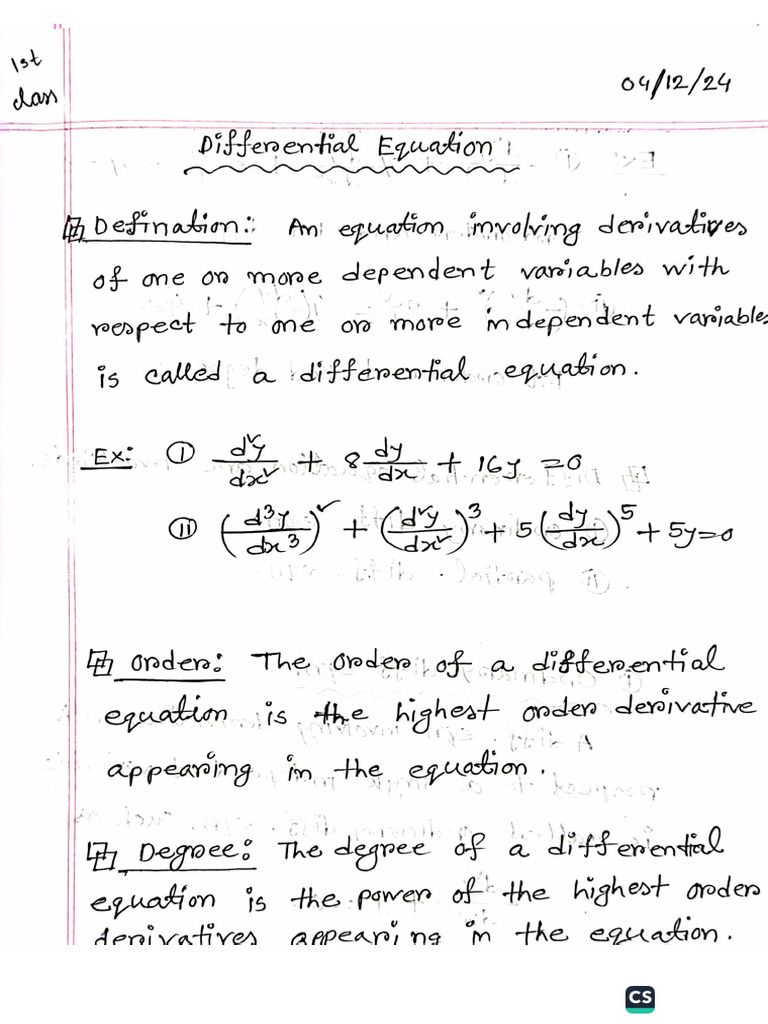 1st
class
04/12/24
Differential Equation
Defination: An equation involving derivatives
of one or more dependent variables with
respect to one or more independent variables
is called a differential equation.
Ex: (i) d²y/dx² + 8 dy/dx + 16y = 0
(ii) (d³y/dx³)² + (d²y/dx²)³ + 5(dy/dx)⁵ + 5y=0
Order: The order of a differential
equation is the highest order derivative
appearing in the equation.
Degree: The degree of a differential
equation is the power of the highest order
derivatives appearing in the equation.
CS